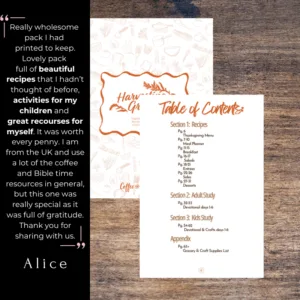 "
Really wholesome
pack I had
printed to keep.
Lovely pack
full of beautiful
recipes that I hadn't
thought of before,
activities for my
children and
great recourses for
myself. It was worth
every penny. I am
from the UK and use
a lot of the coffee
and Bible time
resources in general,
but this one was
really special as it
was full of gratitude.
Thank you for
sharing with us.
"
Alice
Table of Contents
Section 1: Recipes
Thanksgiving Menu
Meal Planner
Breakfast
Salads
Entrees
Sides
Desserts
Section 2: Adult Study
Devotional days 1-6
Section 3: Kids Study
Devotional & Crafts days 1-6
Appendix
Grocery & Craft Supplies List